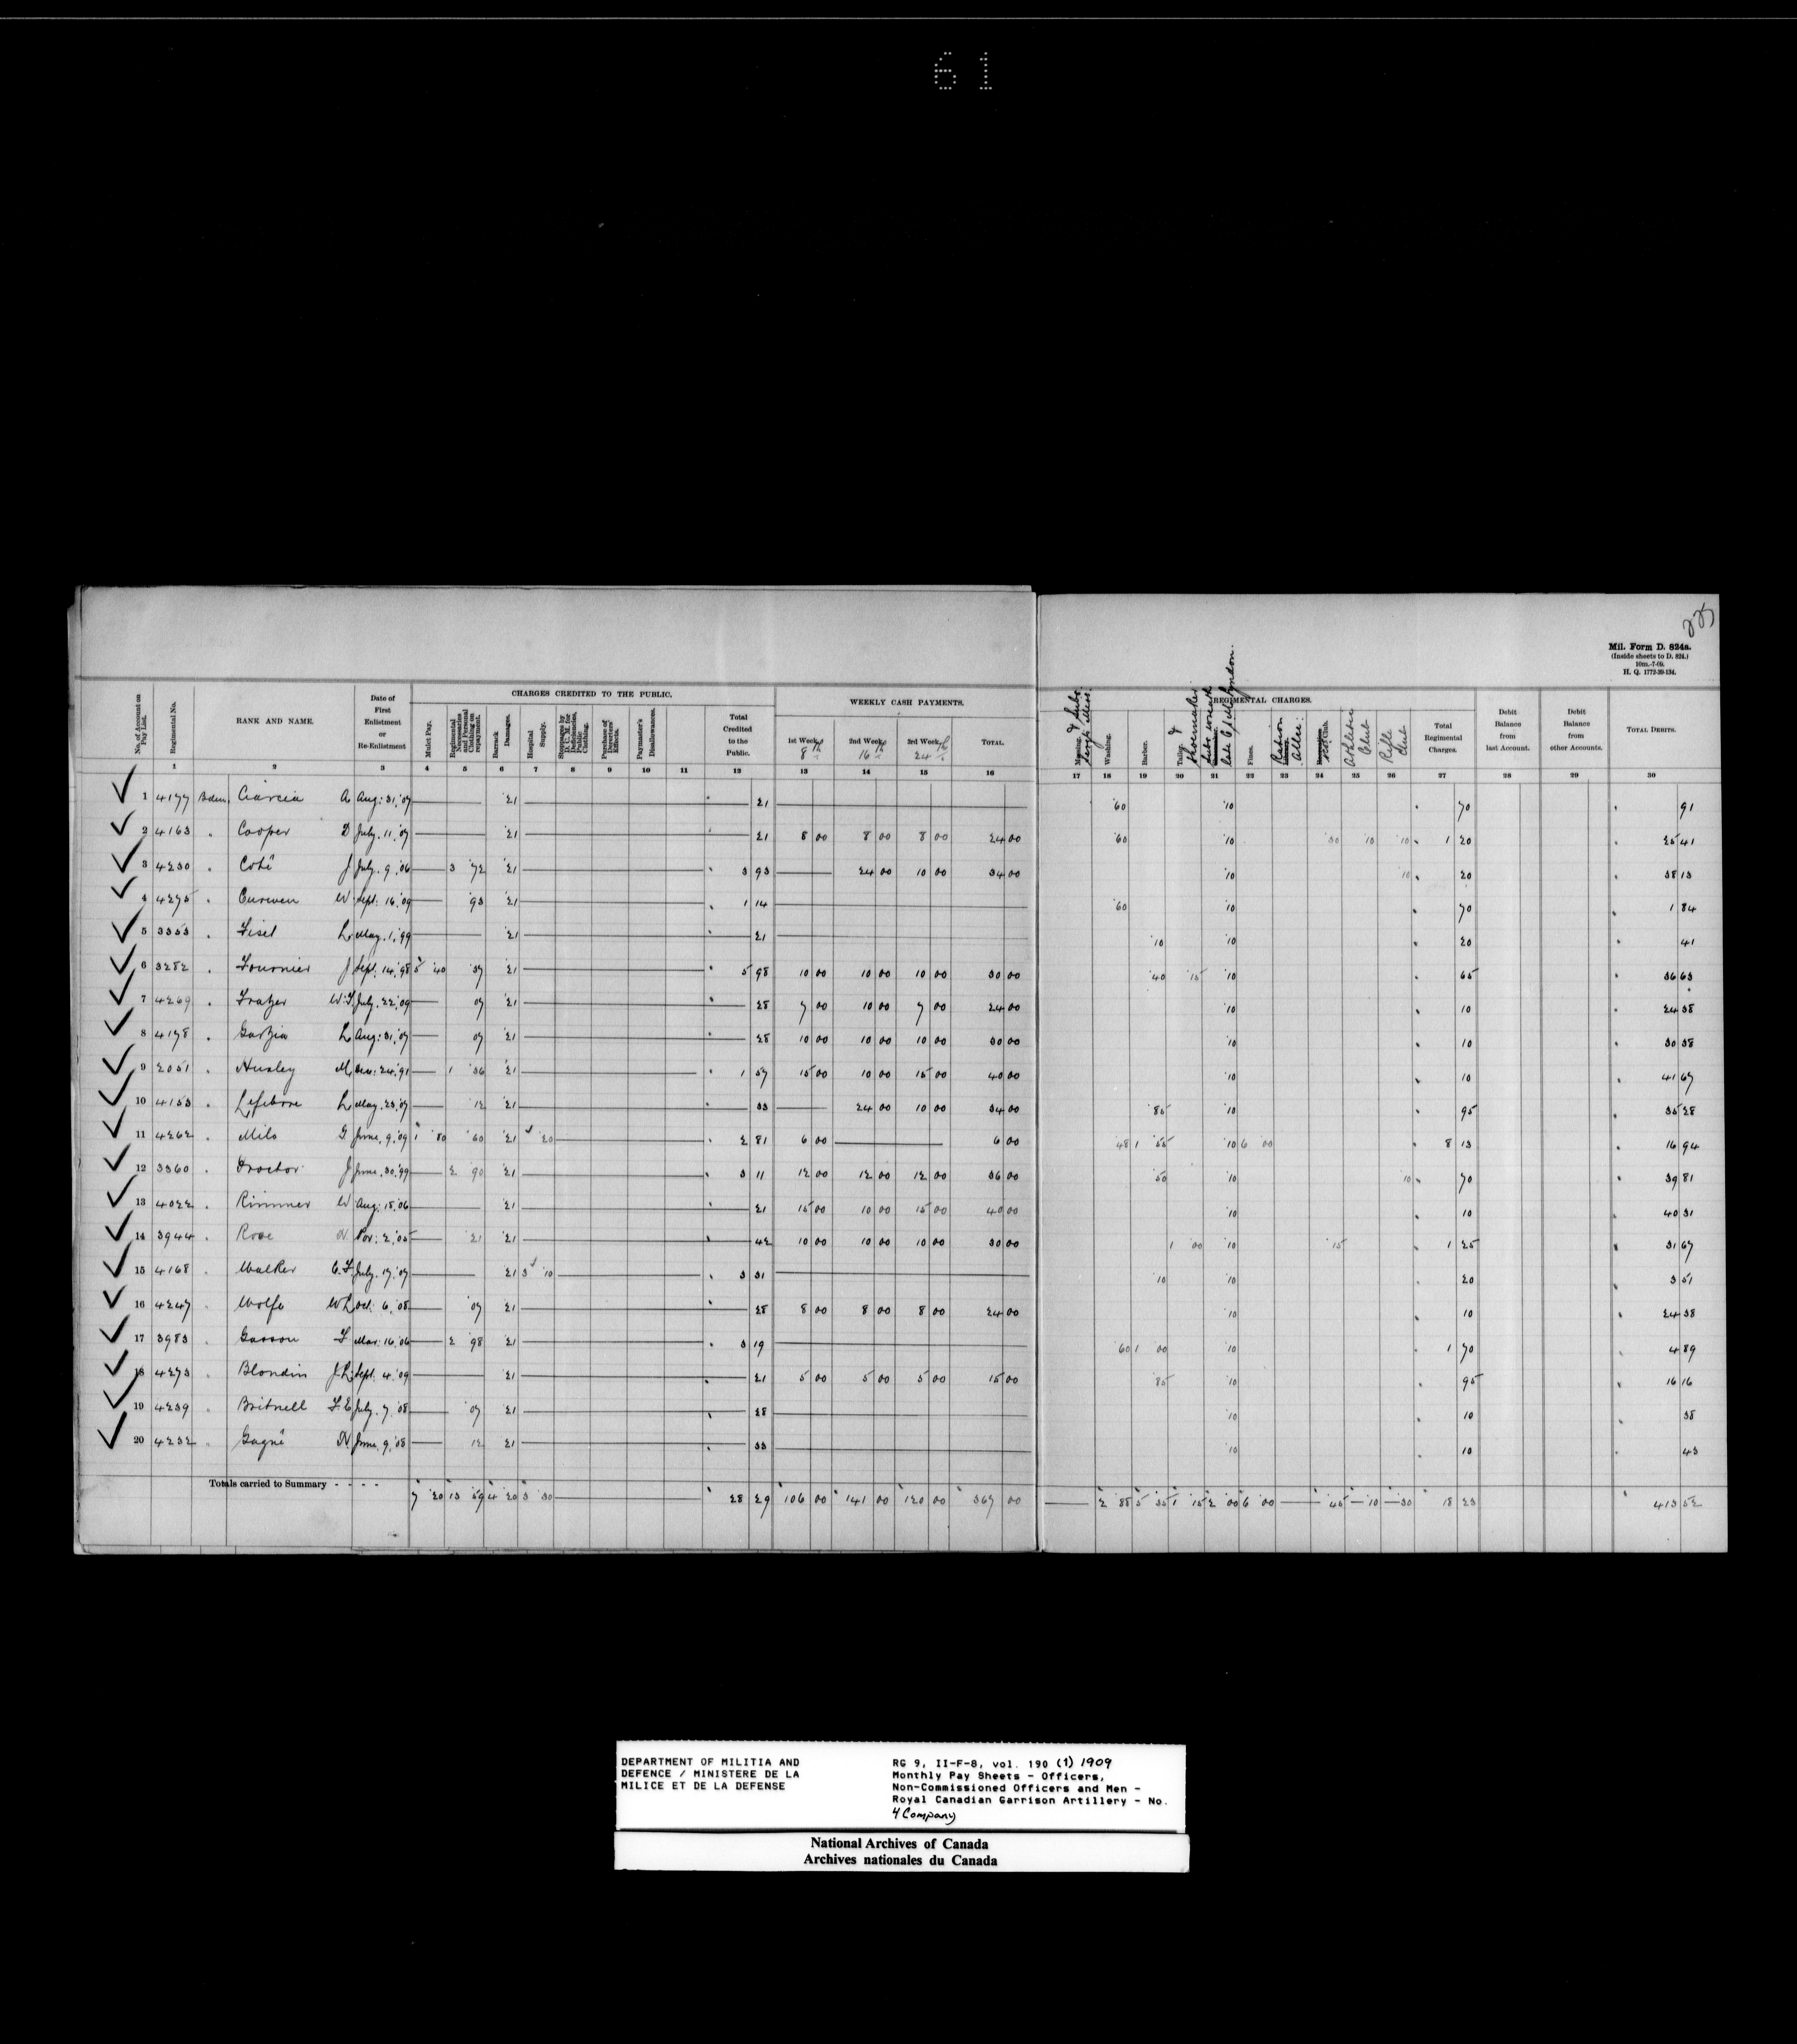 61
225
Mil. Form D. 824a.
(Inside sheets to D. 824.)
10m.-7-09.
H. Q. 1772-39-134.
CHARGES CREDITED TO THE PUBLIC.
WEEKLY CASH PAYMENTS.
REGIMENTAL CHARGES.
No. of Account on Pay List.
Regimental No.
RANK AND NAME.
Date of First Enlistment or Re-Enlistment
Mulct Pay.
Regimental Necessaries and Personal Clothing on repayment.
Barrack Damages.
Hospital Supply.
Stoppages by D. C. M. for Deficiencies, Public Clothing.
Purchase of Deserters' Effects.
Paymaster's Disallowances.
Total Credited to the Public.
1st Week 8th
2nd Week 16th
3rd Week 24th
TOTAL.
Messing. & Subs. Sergts Mess.
Washing.
Barber.
Tailor & Shoemaker
Subs wreath late C/ Lyndon.
Fines.
Ration Allce:
Club.
Athletic Club
Rifle Club
Total Regimental Charges.
Debit Balance from last Account.
Debit Balance from other Accounts.
TOTAL DEBITS.
1 2 3 4 5 6 7 8 9 10 11 12 13 14 15 16 17 18 19 20 21 22 23 24 25 26 27 28 29 30
1 4177 Bdm. Garcia A. Aug: 31, '07 21 21 60 10 70 91
2 4163 " Cooper D July. 11, '07 21 21 8 00 8 00 8 00 24 00 60 10 30 10 10 1 20 25 41
3 4230 " Coté J July. 9, '06 3 72 21 3 93 24 00 10 00 34 00 10 10 20 38 13
4 4275 " Curwen W. Sept. 16, '09 93 21 1 14 60 10 70 1 84
5 3353 " Fisel L. May. 1, '99 21 21 10 10 20 41
6 3282 " Fournier J Sept. 14, '98 5 40 37 21 5 98 10 00 10 00 10 00 30 00 40 15 10 65 36 63
7 4269 " Frazer W.F. July. 22, '09 07 21 28 7 00 10 00 7 00 24 00 10 10 24 38
8 4178 " Garzia L. Aug: 31, '07 07 21 28 10 00 10 00 10 00 30 00 10 10 30 38
9 2051 " Huxley M. Dec: 24, '91 1 36 21 1 57 15 00 10 00 15 00 40 00 10 10 41 67
10 4153 " Lefebvre L. May. 23, '07 12 21 33 24 00 10 00 34 00 85 10 95 35 28
11 4262 " Milo G. June. 9, '09 1 80 60 21 20 2 81 6 00 6 00 48 1 55 10 6 00 8 13 16 94
12 3360 " Proctor J June. 30, '99 2 90 21 3 11 12 00 12 00 12 00 36 00 50 10 10 70 39 81
13 4022 " Rimmer W. Aug: 18, '06 21 21 15 00 10 00 15 00 40 00 10 10 40 31
14 3944 " Rose N. Nov: 2, '05 21 21 42 10 00 10 00 10 00 30 00 1 00 10 15 1 25 31 67
15 4168 " Walker C.F. July. 17, '07 21 3 10 3 31 10 10 20 3 51
16 4247 " Wolfe W.L. Oct: 6, '08 07 21 28 8 00 8 00 8 00 24 00 10 10 24 38
17 3983 " Gasson F. Mar: 16, '06 2 98 21 3 19 60 1 00 10 1 70 4 89
18 4273 " Blondin J.L. Sept. 4, '09 21 21 5 00 5 00 5 00 15 00 85 10 95 16 16
19 4239 " Britnell F.E. July. 7, '08 07 21 28 10 10 38
20 4232 " Gagné N. June. 9, '08 12 21 33 10 10 43
Totals carried to Summary - - - - 7 20 13 59 4 20 3 30 28 29 106 00 141 00 120 00 367 00 2 88 5 35 1 15 2 00 6 00 45 10 30 18 23 413 52
DEPARTMENT OF MILITIA AND
DEFENCE / MINISTERE DE LA
MILICE ET DE LA DEFENSE
RG 9, II-F-8, vol. 190 (1) 1909
Monthly Pay Sheets - Officers,
Non-Commissioned Officers and Men -
Royal Canadian Garrison Artillery - No.
4 Company
National Archives of Canada
Archives nationales du Canada